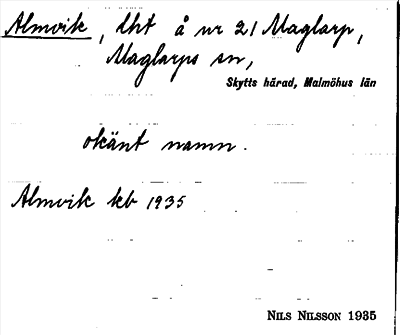 Almvik, dht å nr 21 Maglarp,
Maglarps sn,
Skytts härad, Malmöhus län
okänt namn.
Almvik kb 1935
NILS NILSSON 1935